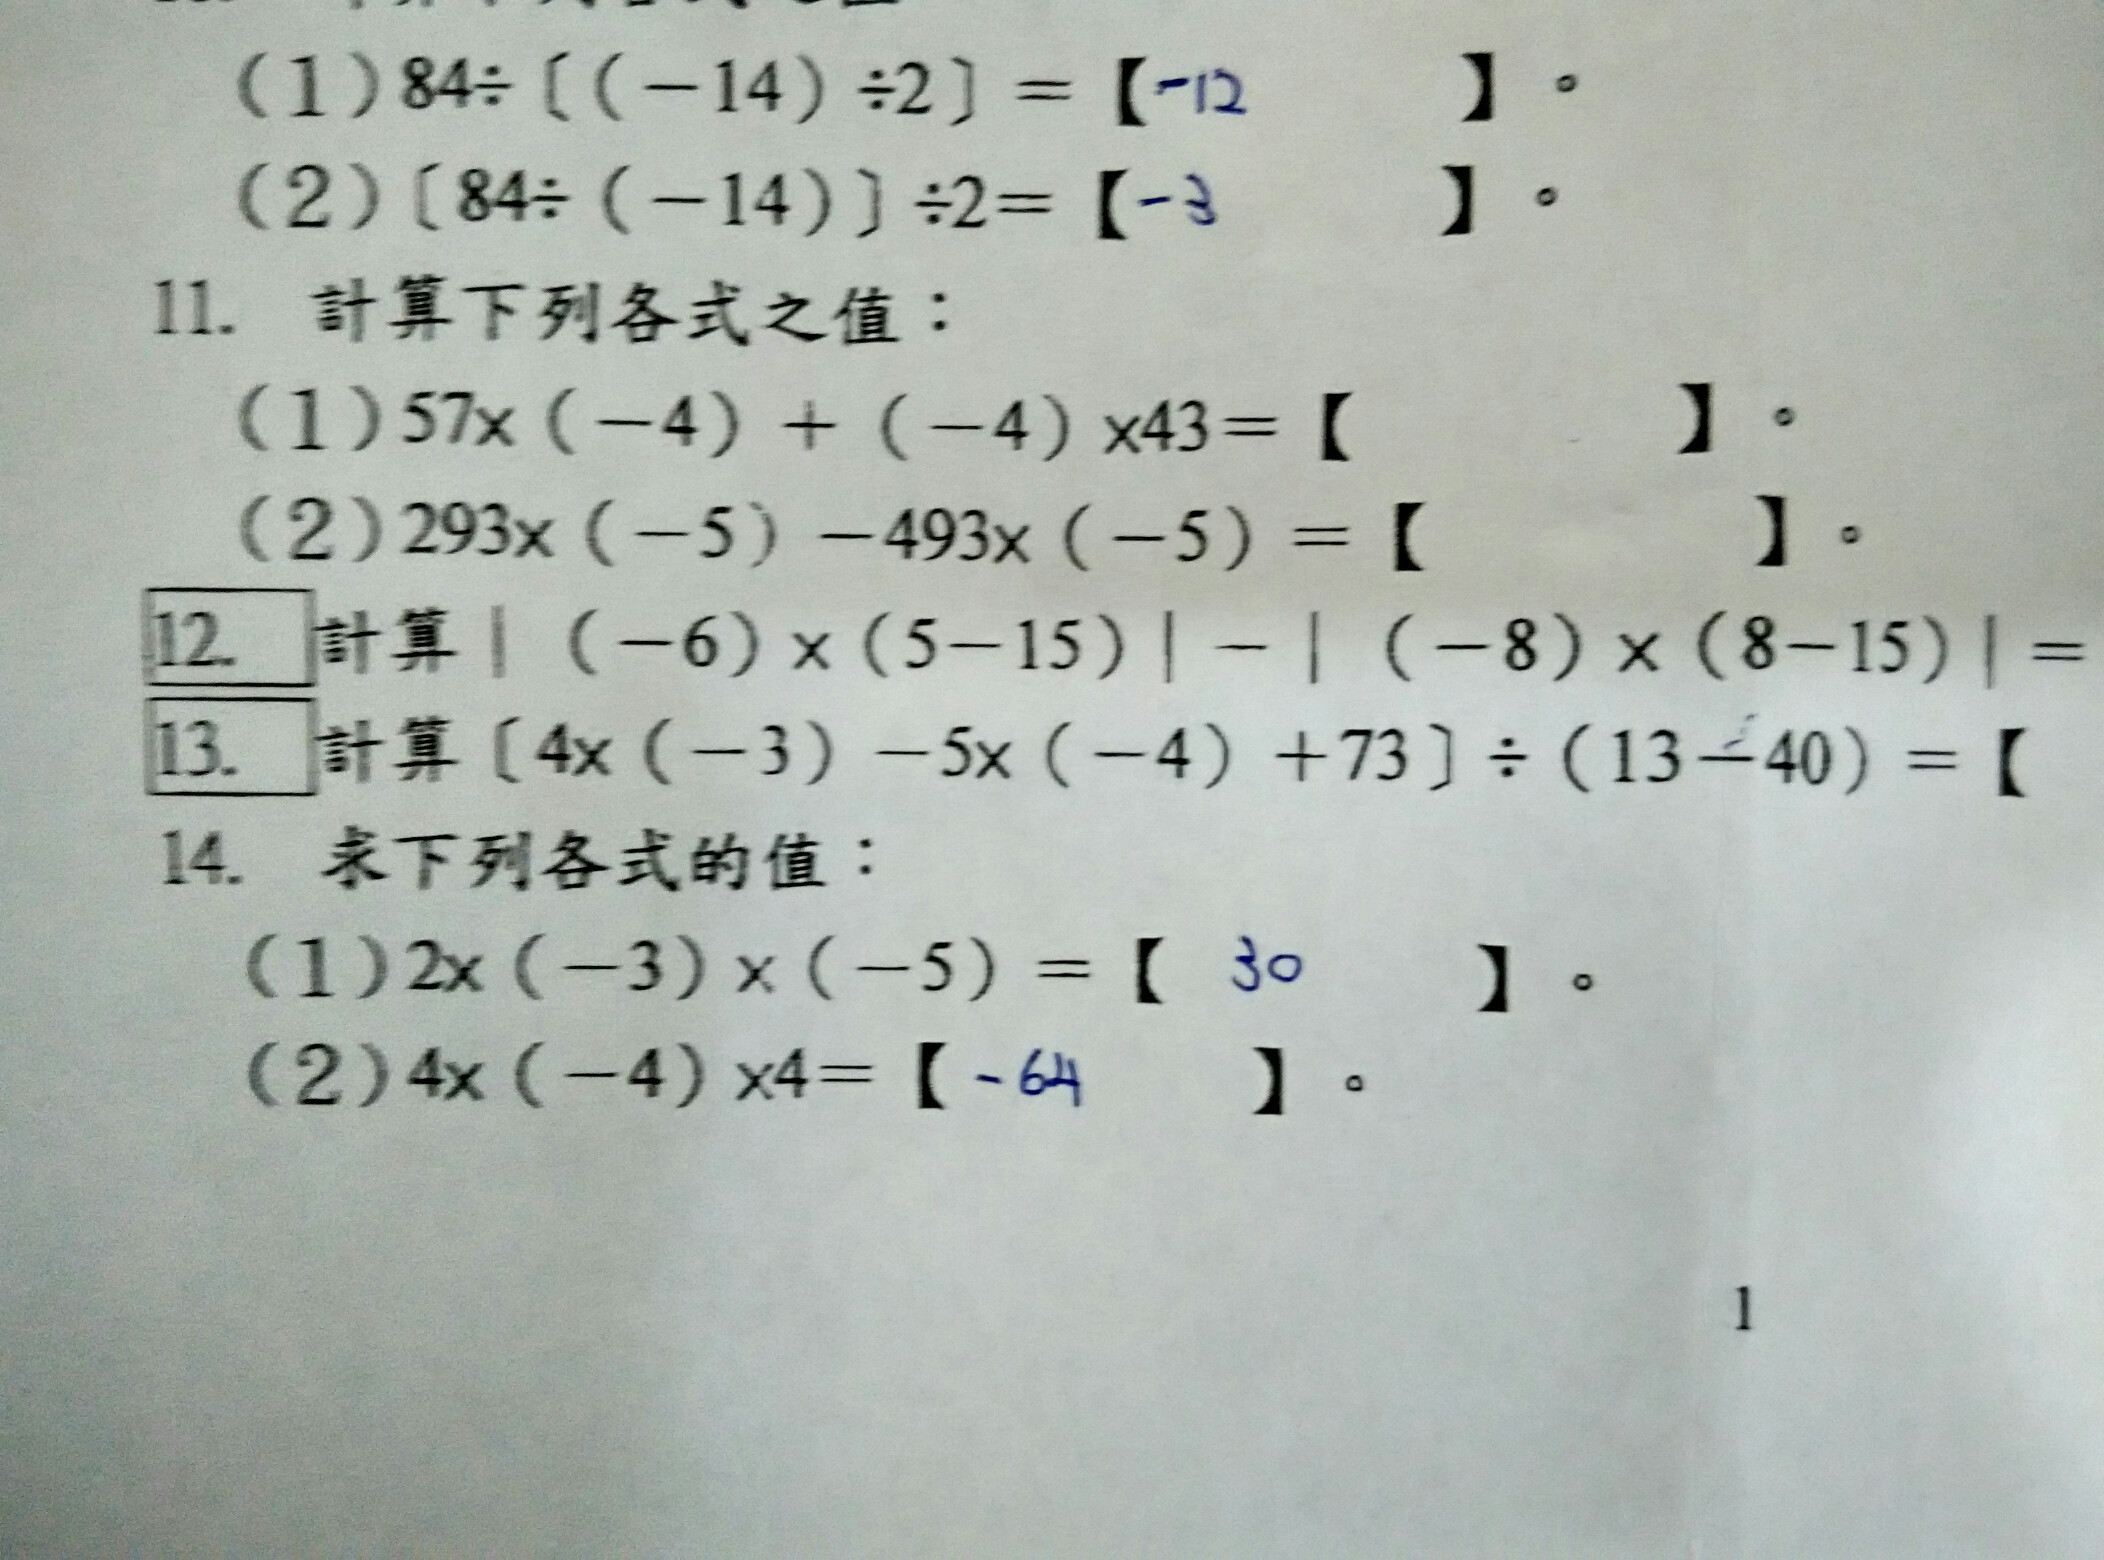 (1)84÷〔(－14)÷2〕＝【-12 】。
(2)〔84÷(－14)〕÷2＝【-3 】。
11. 計算下列各式之值：
(1)57x(－4)＋(－4)x43＝【 】。
(2)293x(－5)－493x(－5)＝【 】。
12. 計算∣(－6)x(5－15)∣－∣(－8)x(8－15)∣＝
13. 計算〔4x(－3)－5x(－4)＋73〕÷(13－40)＝【
14. 求下列各式的值：
(1)2x(－3)x(－5)＝【 30 】。
(2)4x(－4)x4＝【 -64 】。
1